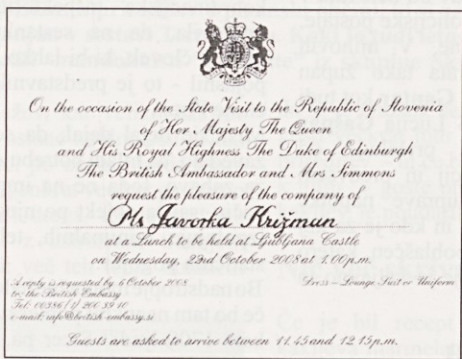 On the occasion of the State Visit to the Republic of Slovenia
of Her Majesty The Queen
and His Royal Highness The Duke of Edinburgh
The British Ambassador and Mrs Simmons
request the pleasure of the company of
Ms Javorka Križman
at a Lunch to be held at Ljubljana Castle
on Wednesday, 22nd October 2008 at 1.00p.m.
A reply is requested by 6 October 2008
to: the British Embassy
Tel: 00386 (1) 200 39 40
e-mail: info@british-embassy.si
Dress - Lounge Suit or Uniform
Guests are asked to arrive between 11.45 and 12.15p.m.